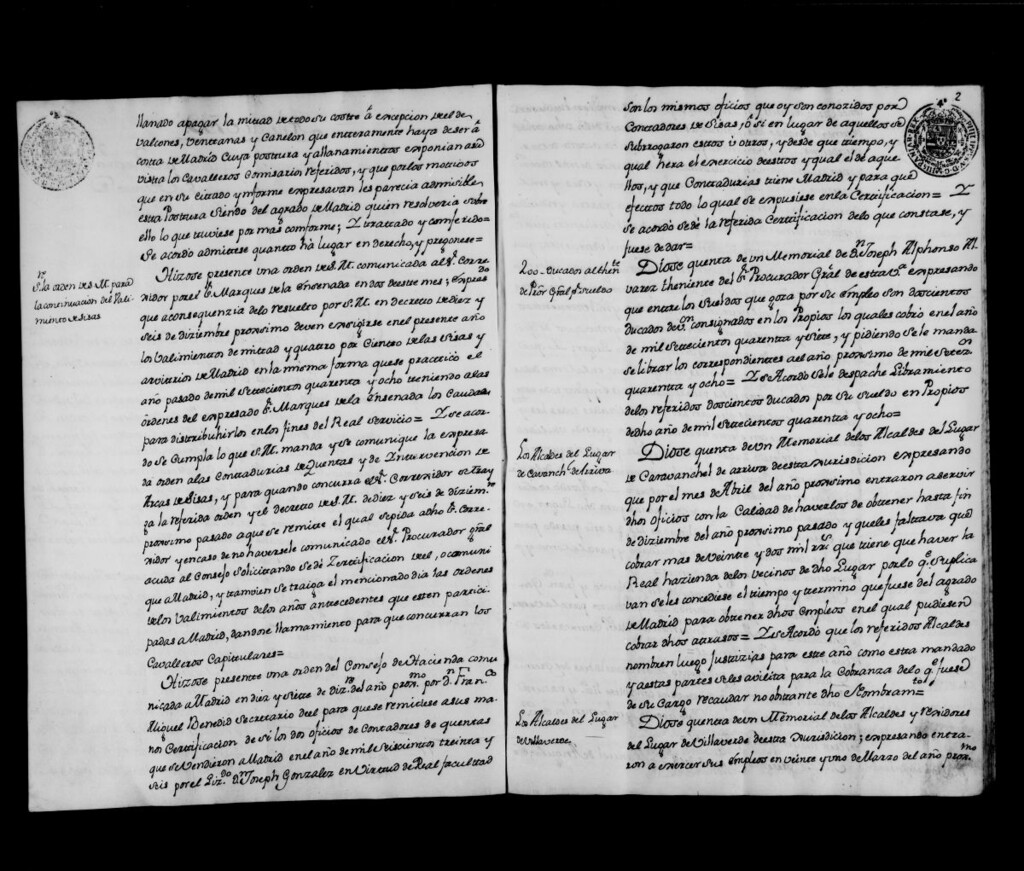 llanado apagar la mitad de todo su costte â excepcion del de
valcones, Ventanas y Canelon que entteramente haya de ser â
costa de Madrid cuya posttura y allanamienttos exponian aesta
vista los Cavalleros Comisarios referidos, y que por los mottivos
que en su cittado ynforme expresavan les parecia admisible
esta Posttura siendo del agrado de Madrid quien resolveria sobre
ello lo que tuviese por mas comforme; Y trattado y comferido=
Se acordo admittese quantto hà lugar en derecho, y pregonese=
Sre. la orden de S. M. para
la continuacion del Vali-
miento de Sisas
Hizose presente una orden de S. M. comunicada al Sr. Corre-
xidor por el Sr. Marques de la Ensenada en dos de este mes; expresando
que a consequenzia de lo resuelto por S. M. en decreto de diez y
seis de diziembre proximo deven exigirse en el presente año
los Valimientos de mitad y quattro por Ciento de las Sisas y
arvitrios de Madrid en la misma forma que se practicó el
año pasado de mil settecientos quarenta y ocho teniendo a las
órdenes del expresado Sr. Marques de la Ensenada los Caudales
para distribuhirlos en los fines del Real servicio= Y se acor-
do se Cumpla lo que S. M. manda y se comunique la expresa-
da orden a las Contadurias de Quentas y de Intervencion de
Arcas de Sisas, y para quando concurra el Sr. Correxidor se tray-
ga la referida orden y el decreto de S. M. de diez y seis de diziembre
proximo pasado a que se remite el qual se pida a dho Sr. Corre-
xidor y en caso de no haversele comunicado el Sr. Procurador gral
acuda al Consejo solicitando se dé Zertificacion de el, o comuni-
que a Madrid, y tamvien se traiga el mencionado dia las ordenes
de los Valimientos de los años antecedentes que esten partici-
padas a Madrid, dandose llamamiento para que concurran los
Cavalleros Capitulares=
Hizose presente una orden del Consejo de Hacienda comu-
nicada a Madrid en diez y siete de Dizre. del año proxmo. por Dn. Franco
Miguel Benedid Secretario de el para que se remitiese a sus ma-
nos Certificacion de si los dos oficios de Contadores de quentas
que se vendieron a Madrid en el año de mil seiscientos treinta y
seis por el Lizdo. Dn. Joseph Gonzalez en Virtud de Real facultad
2
son los mismos oficios que oy son conozidos por
Contadores de Sisas, ô si en lugar de aquellos se
subrrogaron estros ù otros, y desde que tiempo, y
qual hera el exercicio de estros y qual el de aque
llos, y que Contadurias tiene Madrid y para que
efectos todo lo qual se expusiese en la Certificacion= Y
se acordo se dé la referida Certificacion de lo que constase, y
fuese de dar=
200 Ducados al thente
de Pror Gral pr su sueldo
Diose quenta de un Memorial de Dn. Joseph Alphonso Al-
varez theniente del Sr. Procurador Gral de esta Va. expresando
que entre los sueldos que goza por su empleo son doscientos
ducados de Von. consignados en los Propios los quales cobró en el año
de mil settecientos quarenta y siete, y pidiendo se le manda
se librar los correspondientes al año proximo de mil setecos.
quarenta y ocho= Y se Acordó se le despache Libramiento
de los referidos doscientos ducados por su sueldo en Propios
de dho año de mil settecientos quarenta y ocho=
Los Alcaldes del Lugar
de Cavanchl de Arriva
Diose quenta de Un Memorial de los Alcaldes del Lugar
de Caravanchel de arriva de esta Jurisdicion expresando
que por el mes de Abril del año proximo entraron a servir
dhos Oficios con la Calidad de haverlos de obtener hasta fin
de diziembre del año proximo pasado y que les faltava que
cobrar mas de veinte y dos mil rrs que tiene que haver la
Real hazienda de los vecinos de dho Lugar por lo q. suplica
van se les concediese el tiempo y termino que fuese del agrado
de Madrid para obtener dhos empleos en el qual pudiesen
cobrar dhos attrasos= Y se Acordó que los referidos Alcaldes
nombren luego Justizias para este año como estta mandado
y a estas partes se les avilita para la Cobranza de lo q. fuese
de su Cargo recaudar no obstante dho Nombramto.=
Los Alcaldes del Lugar
de Villaverde
Diose quenta de un Memorial de los Alcaldes y rexidores
del Lugar de Villaverde de esta Jurisdicion; expresando entra-
ron a exercer sus empleos en veinte y uno de Marzo del año proxmo.